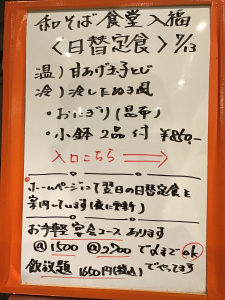 和そば食堂 入福
〈日替定食〉9/13
温）甘あげ玉子とじ
冷）冷したぬき風
・おにぎり（昆布）
・小鉢2品付 ¥850.-
入口こちら →
ホームページにて翌日の日替定食を
案内しています（夜に更新）
お手軽宴会コースあります
@1500 @2500 で ok
飲放題 1650円（税込）でやってます